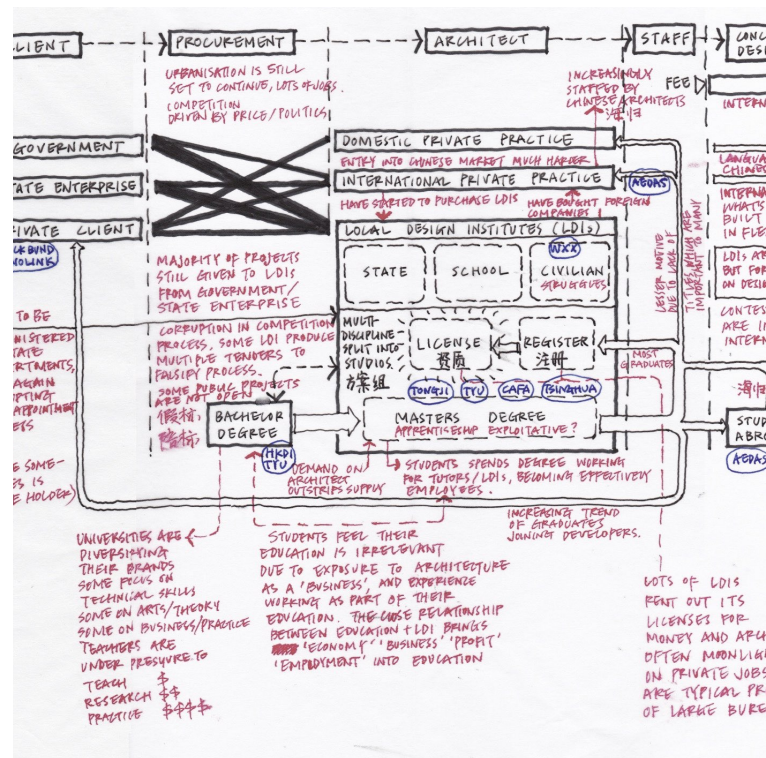 CLIENT
PROCUREMENT
ARCHITECT
STAFF
CONC
DESI
URBANISATION IS STILL
SET TO CONTINUE, LOTS OF JOBS.
COMPETITION
DRIVEN BY PRICE/POLITICS
INCREASINGLY
STAFFED BY
CHINESE ARCHITECTS
海归
FEE
INTERN
GOVERNMENT
TATE ENTERPRISE
RIVATE CLIENT
CKBUND
NOLINK
DOMESTIC PRIVATE PRACTICE
ENTRY INTO CHINESE MARKET MUCH HARDER
INTERNATIONAL PRIVATE PRACTICE
AEDAS
HAVE STARTED TO PURCHASE LDIS
HAVE BOUGHT FOREIGN
COMPANIES
LOCAL DESIGN INSTITUTES (LDIs)
WXX
STATE
SCHOOL
CIVILIAN
STRUGGLES
LESSER MOTIVE
DUE TO LACK OF
TITLES WHICH ARE
IMPORTANT TO MANY
LANGUA
CHINES
INTERNA
WHAT'S
BUILT
IN FLE
LDIS AR
BUT FOR
ON DESIG
CONTES
ARE II
INTERN
MAJORITY OF PROJECTS
STILL GIVEN TO LDIS
FROM GOVERNMENT/
STATE ENTERPRISE
CORRUPTION IN COMPETITION
PROCESS, SOME LDI PRODUCE
MULTIPLE TENDERS TO
FALSIFY PROCESS.
SOME PUBLIC PROJECTS
ARE NOT OPEN
假标
TO BE
NISTERED
TATE
ARTMENTS,
AGAIN
PTING
APPOINTMENT
E SOME-
ES IS
E HOLDER)
MULTI-
DISCIPLINE
SPLIT INTO
STUDIOS.
方案组
LICENSE
资质
REGISTER
注册
MOST
GRADUATES
TONGJI
TYU
CAFA
TSINGHUA
BACHELOR
DEGREE
HKDI
TYU
MASTERS DEGREE
APPRENTICESHIP EXPLOITATIVE?
海归
STUD
ABRO
AEDAS
DEMAND ON
ARCHITECT
OUTSTRIPS SUPPLY
STUDENTS SPENDS DEGREE WORKING
FOR TUTORS/LDIS, BECOMING EFFECTIVELY
EMPLOYEES.
INCREASING TREND
OF GRADUATES
JOINING DEVELOPERS.
UNIVERSITIES ARE
DIVERSIFYING
THEIR BRANDS
SOME FOCUS ON
TECHNICAL SKILLS
SOME ON ARTS/THEORY
SOME ON BUSINESS/PRACTICE
TEACHERS ARE
UNDER PRESSURE TO
TEACH $
RESEARCH $$
PRACTICE $$$$
STUDENTS FEEL THEIR
EDUCATION IS IRRELEVANT
DUE TO EXPOSURE TO ARCHITECTURE
AS A 'BUSINESS', AND EXPERIENCE
WORKING AS PART OF THEIR
EDUCATION. THE CLOSE RELATIONSHIP
BETWEEN EDUCATION + LDI BRINGS
'ECONOMY' 'BUSINESS' 'PROFIT'
'EMPLOYMENT' INTO EDUCATION
LOTS OF LDIS
RENT OUT ITS
LICENSES FOR
MONEY AND ARCH
OFTEN MOONLIG
ON PRIVATE JOBS
ARE TYPICAL PR
OF LARGE BURE